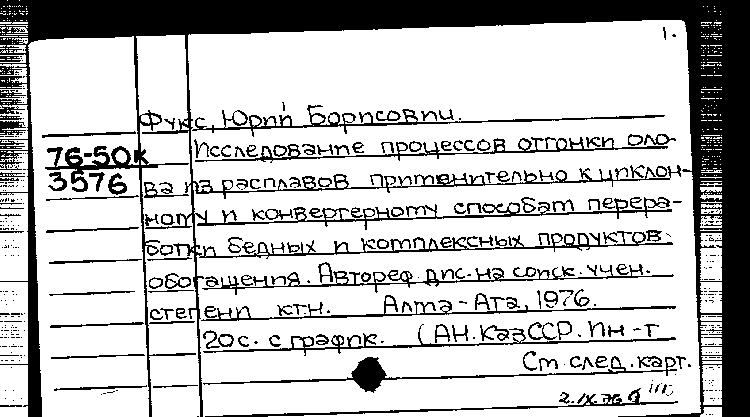 1.
Фукс, Юрий Борисович.
76-50к Исследование процессов отгонки оло-
3576 ва из расплавов применительно к циклон-
ному и конвертерному способам перера-
ботки бедных и комплексных продуктов
обогащения. Автореф дис. на соиск. учен.
степени ктн. Алма-Ата, 1976.
20с. с график. (АН. КазССР. Ин-т
См. след. карт.
2.IX.76